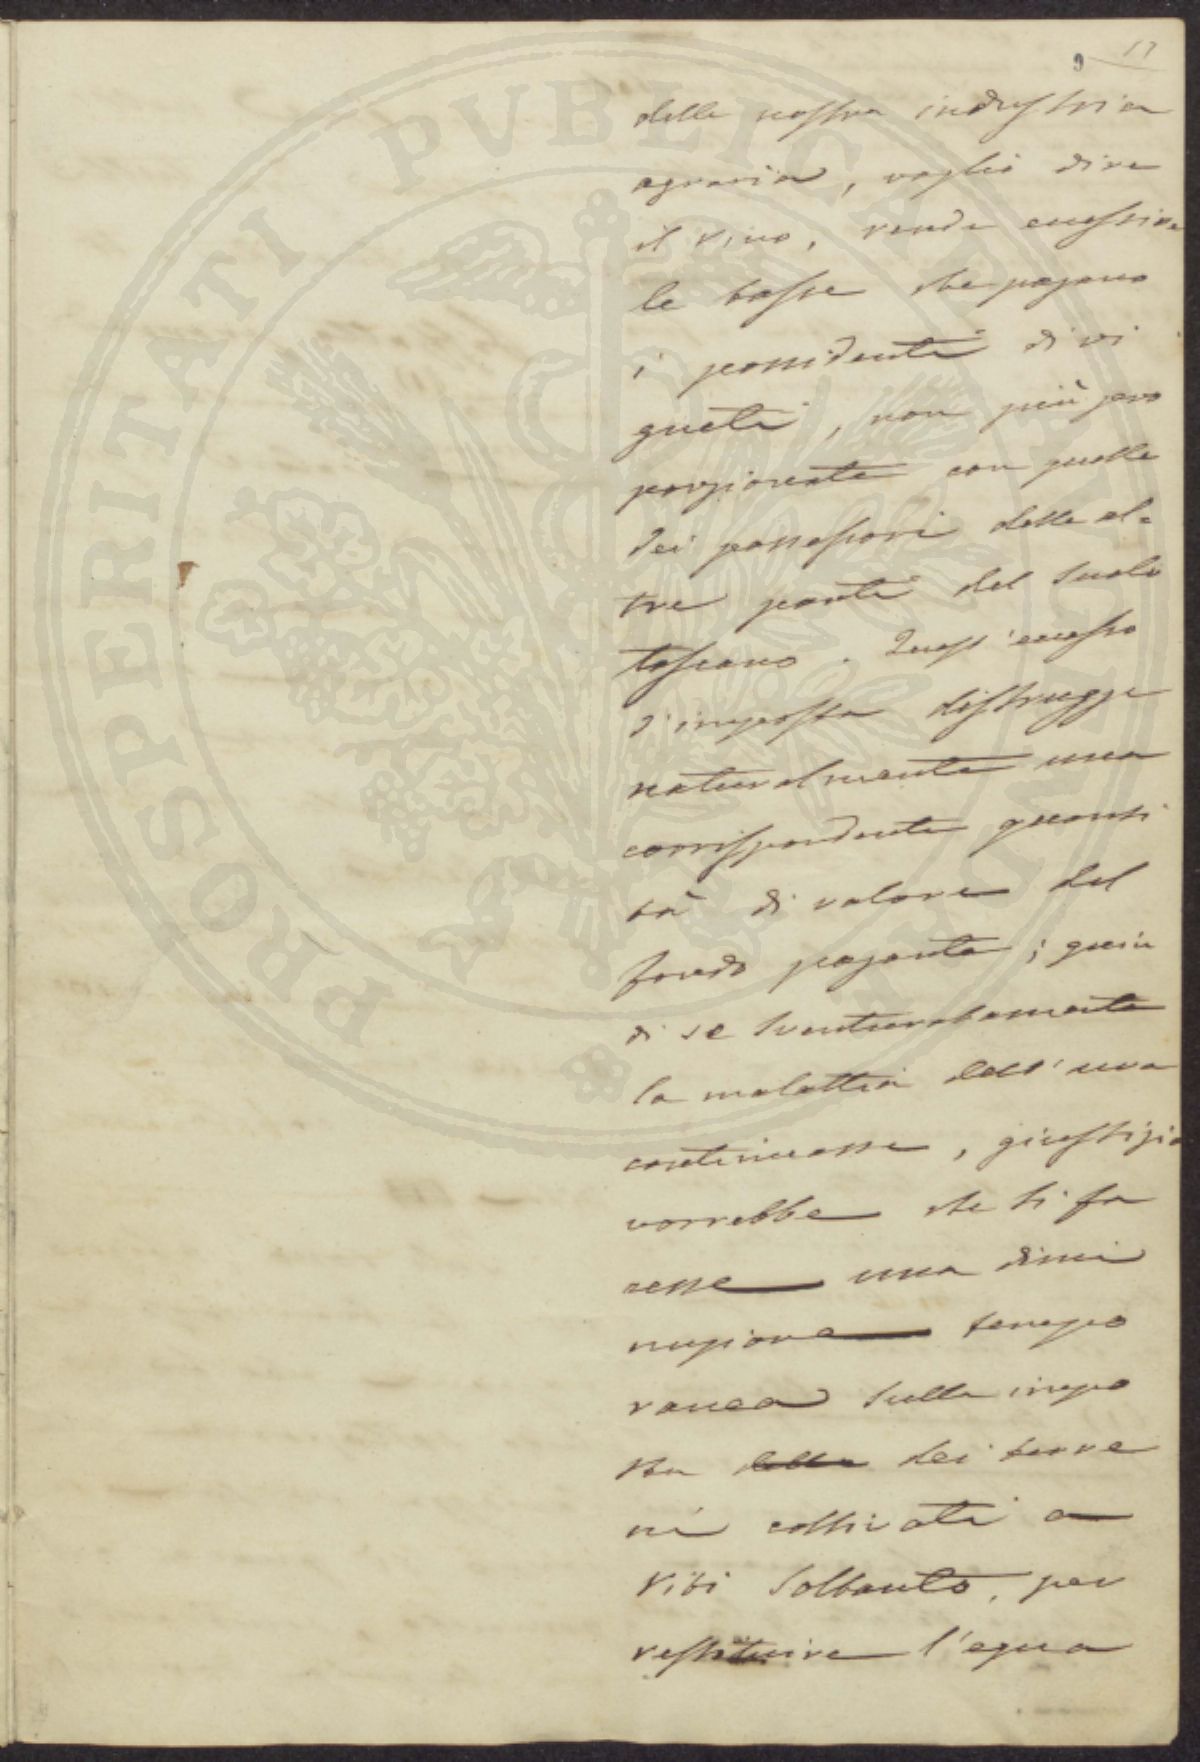 9 17
della nostra industria
agraria, voglio dire
il vino, rende eccessive
le tasse che pagano
i possidenti di vi
gneti, non più pro
porzionate con quelle
dei possessori delle al=
tre parti del suolo
toscano. Quest'eccesso
d'imposta distrugge
naturalmente una
corrispondente quanti
tà di valore del
fondo pagante; quin
di se sventuratamente
la malattia dell'uva
continuasse, giustizia
vorrebbe che si fa
cesse una dimi
nuzione tempo
ranea sulla impo
sta della dei terre
ni coltivati a
viti soltanto, per
restituire l'equa
PROSPERITATI PUBLICAE AUGENDAE